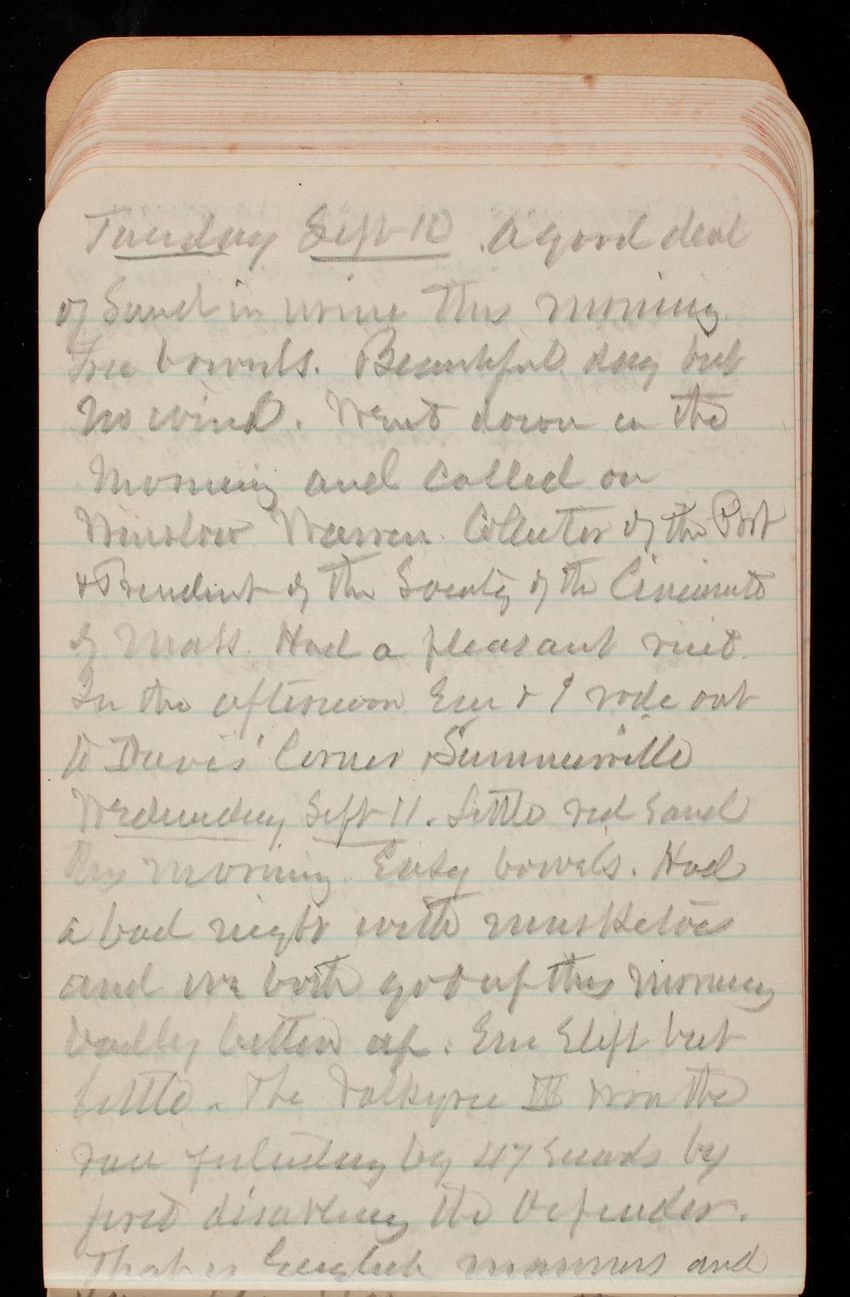 Tuesday Sept 10 A good deal
of Sand in urine this morning.
Free bowels. Beautiful day but
no wind. Went down in the
morning and called on
Winslow Warren Collector of the Port
& President of the Society of the Cincinnati
of Mass. Had a pleasant visit.
In the afternoon Em & I rode out
to Davis' Corner, Summerville
Wednesday Sept 11. Little red Sand
this morning. Easy bowels. Had
a bad night with musketoes
and we both got up this morning
badly bitten up. Em Slept but
little. The Valkyrie III won the
race yesterday by 47 seconds by
first disabling the Defender.
That is English manners and